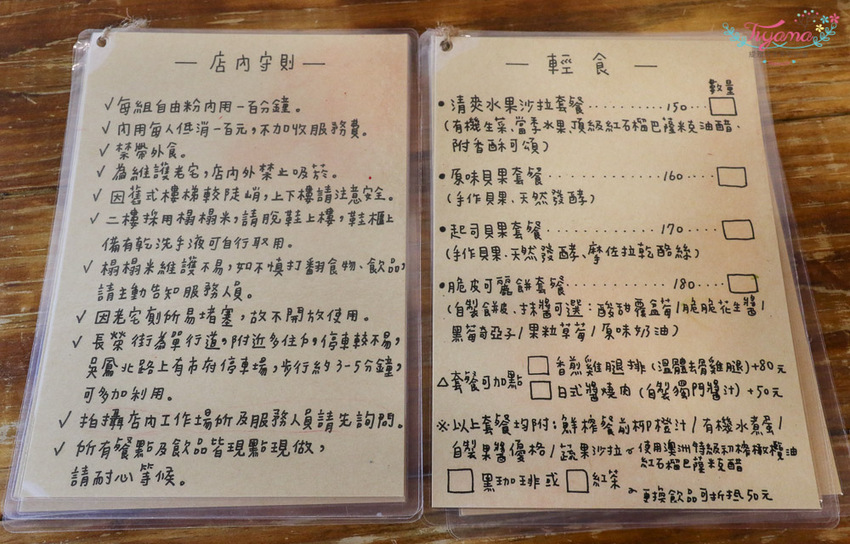 Tiyama
— 店內守則 —
✓每組自由粉內用一百分鐘。
✓內用每人低消一百元,不加收服務費。
✓禁帶外食。
✓為維護老宅,店內外禁止吸菸。
✓因舊式樓梯較陡峭,上下樓請注意安全。
✓二樓採用榻榻米,請脫鞋上樓,鞋櫃上
備有乾洗手液可自行取用。
✓榻榻米維護不易,如不慎打翻食物、飲品,
請主動告知服務人員。
✓因老宅廁所易堵塞,故不開放使用。
✓長榮街為單行道,附近多住戶,停車較不易,
吳鳳北路上有市府停車場,步行約3-5分鐘,
可多加利用。
✓拍攝店內工作場所及服務人員請先詢問。
✓所有餐點及飲品皆現點現做,
請耐心等候。
— 輕食 —
數量
•清爽水果沙拉套餐..........150...□
(有機生菜、當季水果、頂級紅石榴巴薩米克油醋、
附香酥可頌)
•原味貝果套餐..............160....□
(手作貝果、天然發酵)
•起司貝果套餐..............170....□
(手作貝果、天然發酵、摩佐拉乾酪絲)
•脆皮可麗餅套餐............180...□
(自製餅皮、抹醬可選:酸甜覆盆莓/脆脆花生醬/
黑葡萄亞子/果粒草莓/原味奶油)
△套餐可加點
□香煎雞腿排(溫體去骨雞腿)+80元
□日式醬燒肉(自製獨門醬汁)+50元
※以上套餐均附:鮮榨餐前柳橙汁/有機水煮蛋/
自製果醬優格/蔬果沙拉
使用澳洲特級初榨橄欖油
紅石榴巴薩米克醋
□黑珈琲或□紅茶
更換飲品可折抵50元